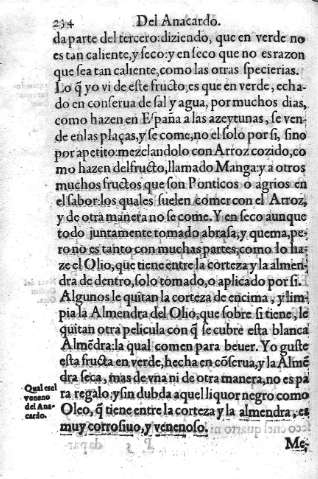 234 Del Anacardo.
da parte del tercero: diziendo, que en verde no
es tan caliente, y seco: y en seco que no es razon
que sea tan caliente, como las otras specierias.
Lo q̃ yo vi de este fructo, es que en verde, echa-
do en conserua de sal y agua, por muchos dias,
como hazen en España a las azeytunas, se ven-
de en las plaças, y se come, no el solo por si, sino
por apetito: mezclandolo con Arroz cozido, co
mo hazen del fructo, llamado Manga: y a otros
muchos fructos que son Ponticos o agrios en
el sabor: los quales suelen comer con el Arroz,
y de otra manera no se come. Y en seco aunque
todo juntamente tomado abrasa, y quema, pe-
ro no es tanto con muchas partes, como lo ha-
ze el Olio, que tiene entre la corteza y la almen
dra de dentro, solo tomado, o aplicado por si.
Algunos le quitan la corteza de encima, y lim-
pia la Almendra del Olio, que sobre si tiene, le
quitan otra pelicula con q̃ se cubre esta blanca
Almẽdra: la qual comen para beuer. Yo guste
esta fructa en verde, hecha en cõserua, y la Almẽ
dra seca, mas de vna ni de otra manera, no es pa
ra regalo: y sin dubda aquel liquor negro como
Oleo, q̃ tiene entre la corteza y la almendra, es
muy corrosiuo, y venenoso.
Qual es el
veneno
del Ana-
cardo.
Me-